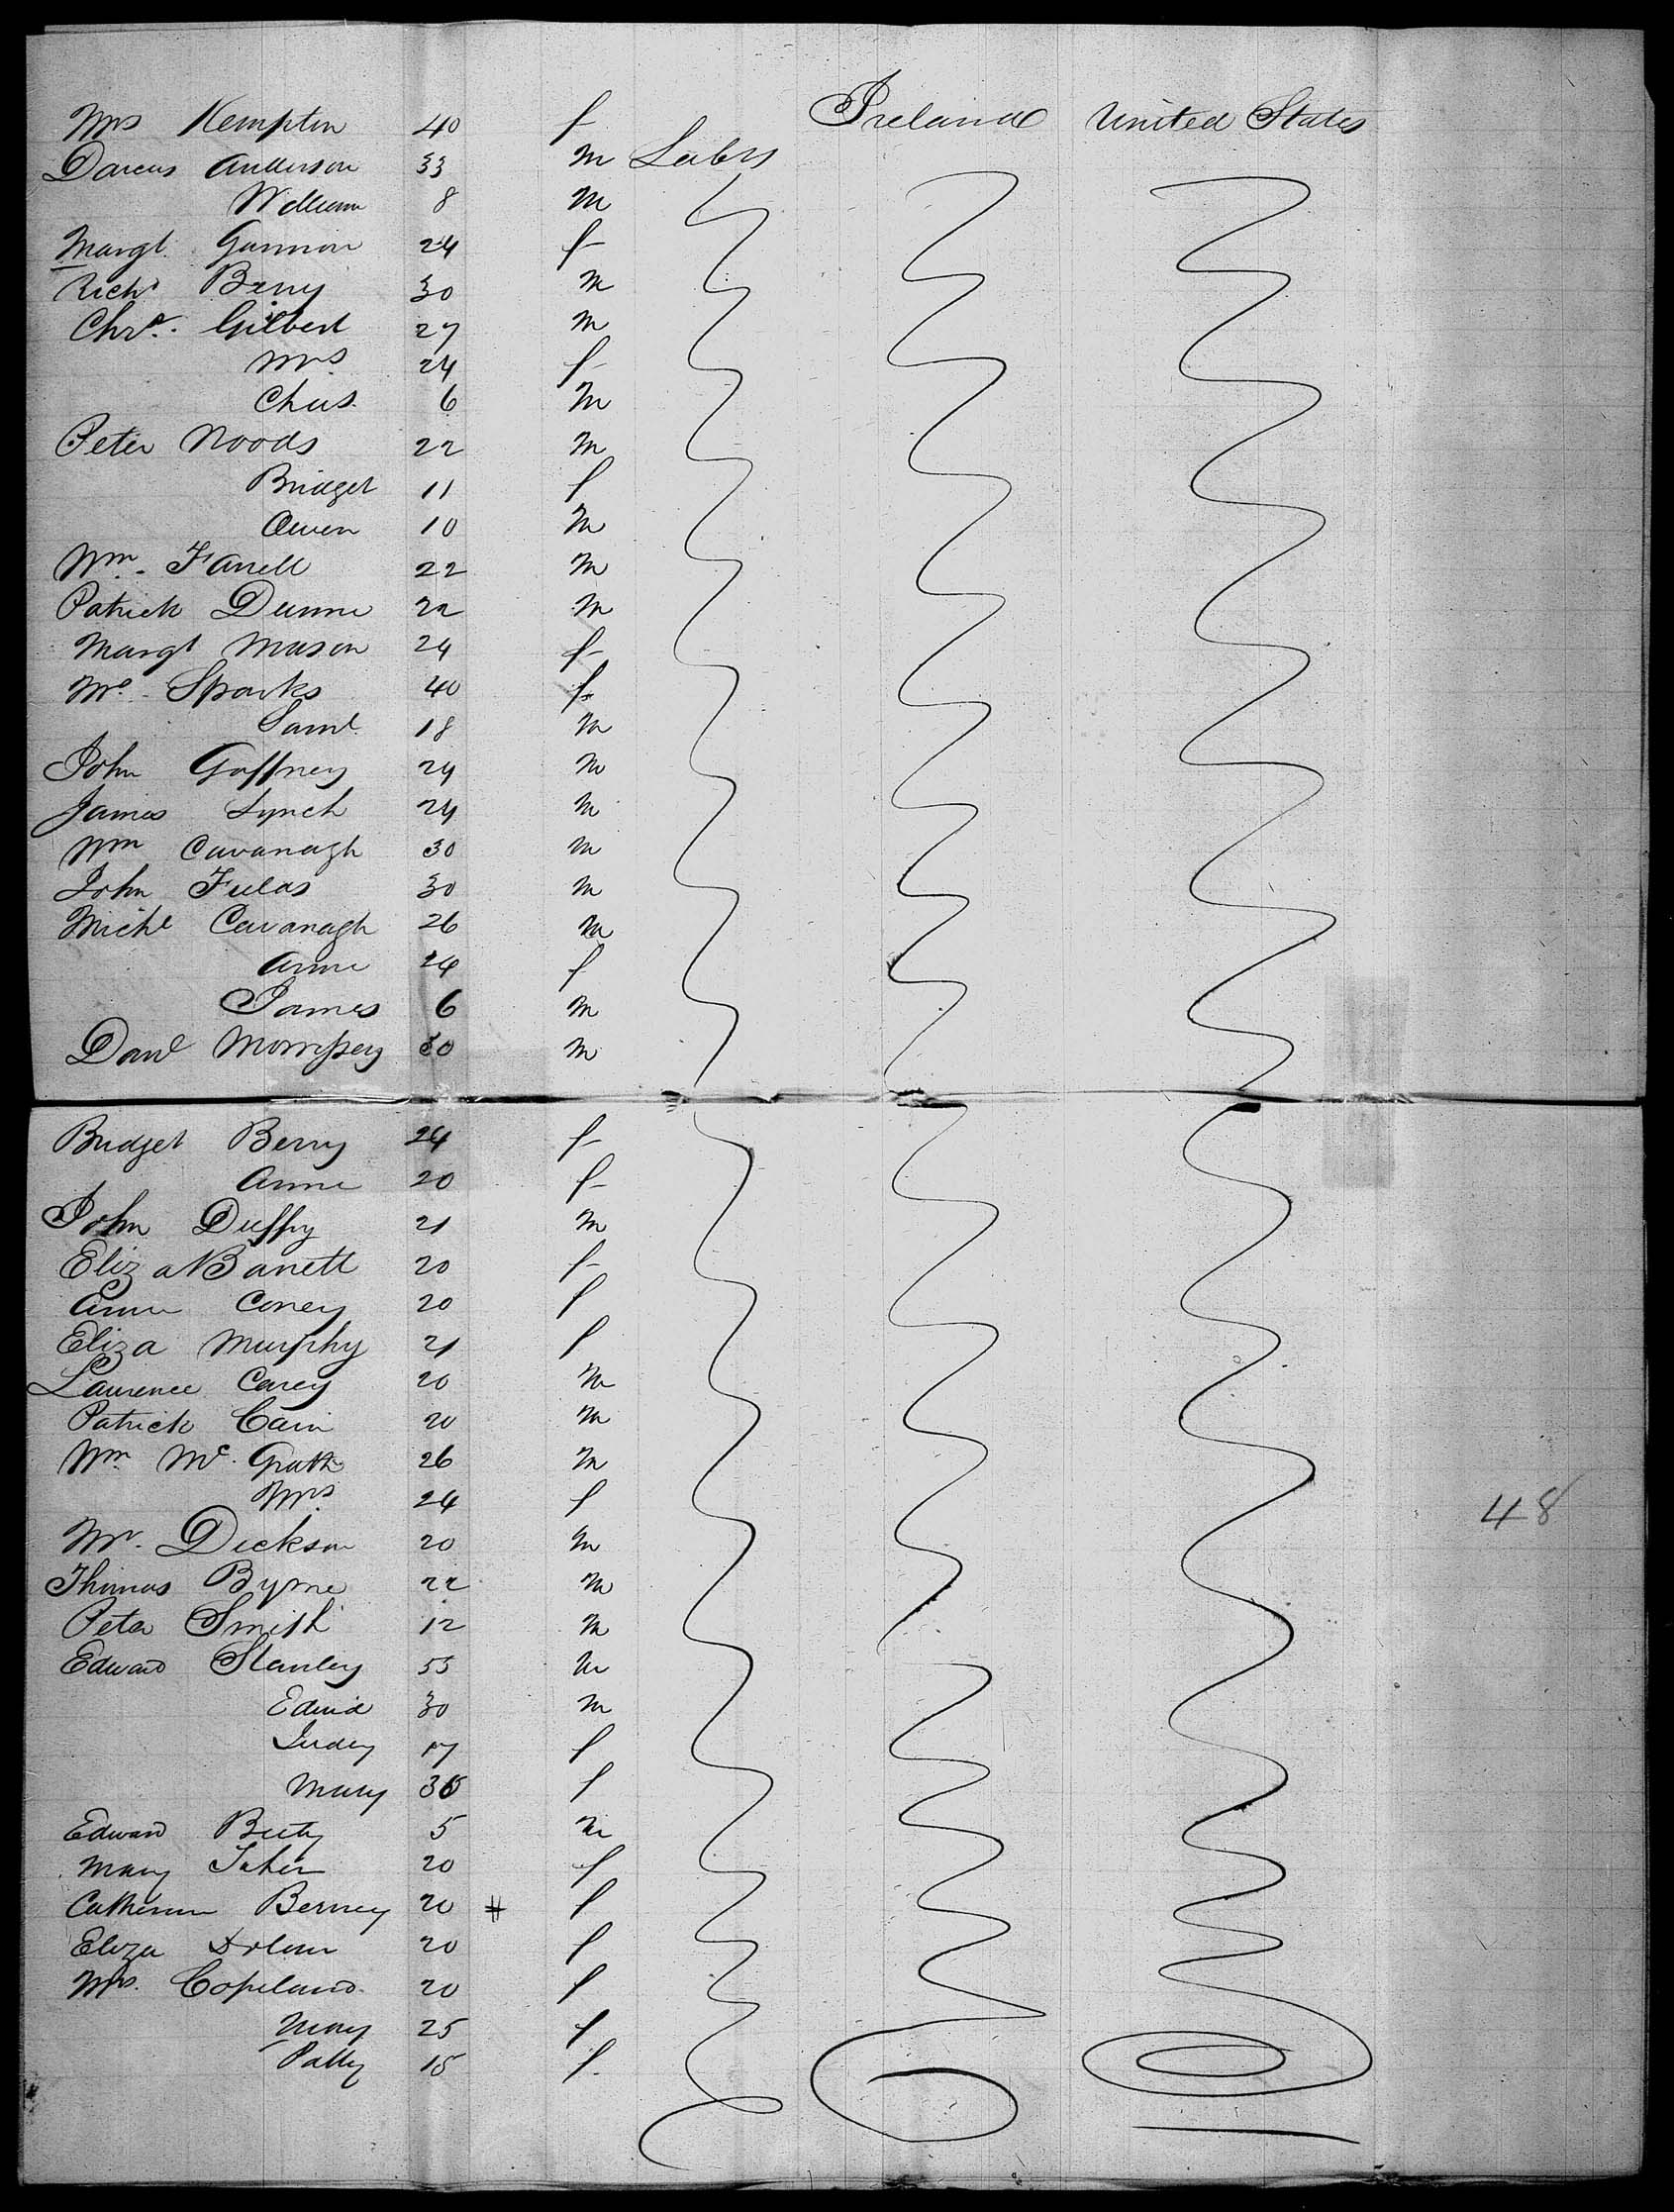 Mrs Kempton 40 f Ireland United States
Darcus Anderson 33 m Labrs
William 8 m
Margt. Gannon 24 f
Richd Berry 30 m
Chrs. Gilbert 27 m
Mrs 24 f
Chas. 6 m
Peter Woods 22 m
Bridget 11 f
Owen 10 m
Wm. Farrell 22 m
Patrick Dunne 22 m
Margt Mason 24 f
Mrs. Sparks 40 f
Saml. 18 m
John Gaffney 24 m
James Lynch 24 m
Wm Cavanagh 30 m
John 30 m
Michl Cavanagh 26 m
Anne 24 f
James 6 m
Danl Morrissey 30 m
Bridget Berry 24 f
Anne 20 f
John Duffy 21 m
Eliza Barrett 20 f
Anne Coney 20 f
Eliza Murphy 21 f
Laurence Carey 20 m
Patrick Cain 20 m
Wm. Mc. Grath 26 m
Mrs. 24 f 48
Mr. Dickson 20 m
Thomas Byrne 22 m
Peter Smith 12 m
Edward Stanley 55 m
Edwd 30 m
Judy 17 f
Mary f
Edward 5 m
Mary 20 f
Catherine Berney 20 # f
Eliza Dolan 20 f
Mrs. Copeland. 20 f
Mary 25 f
Patty 15 f.